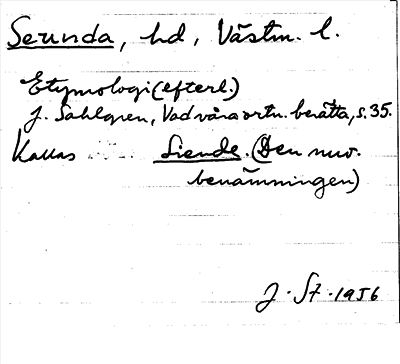 Serunda, hd, Västm. l.
Etymologi (efterl.)
J. Sahlgren, Vad våra ortn. berätta, s. 35.
Kallas Siende. (Den nuv.
benämningen)
J. St. 1956